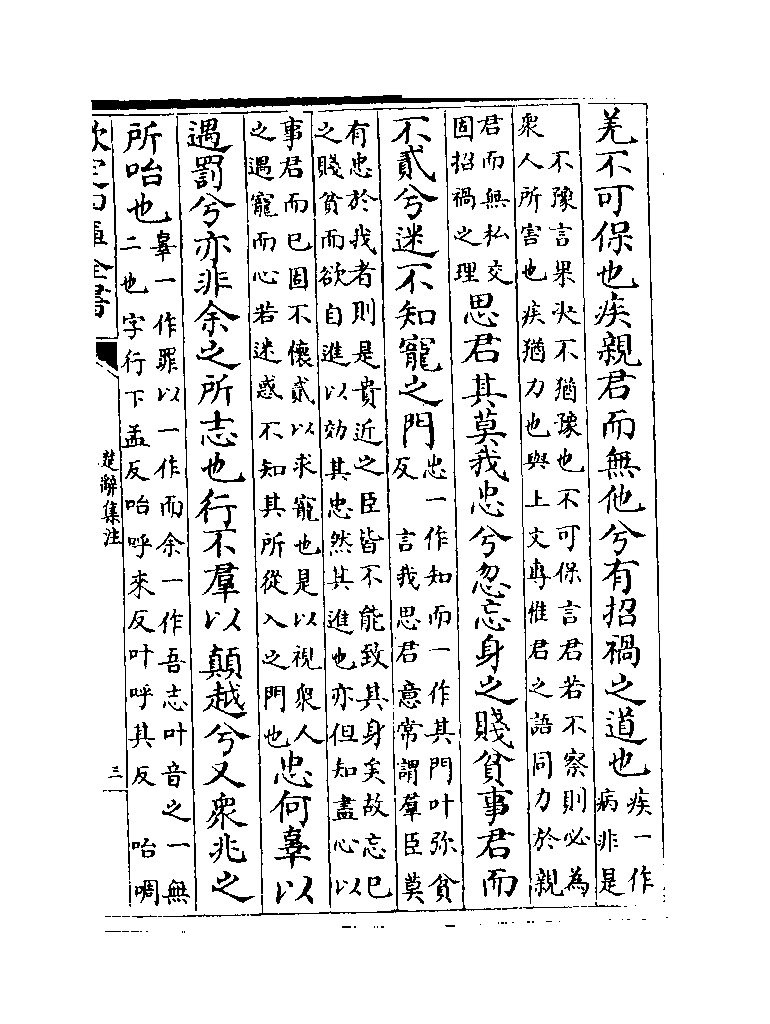 羌不可保也疾親君而無他兮有招禍之道也疾一作病非是
不豫言果決不猶豫也不可保言君若不察則必為
衆人所害也疾猶力也與上文專惟君之語同力於親
君而無私交固招禍之理思君其莫我忠兮忽忘身之賤貧事君而
不貳兮迷不知寵之門忠一作知而一作其門叶弥貧反 言我思君意常謂羣臣莫
有忠於我者則是貴近之臣皆不能致其身矣故忘已
之賤貧而欲自進以効其忠然其進也亦但知盡心以
事君而已固不懷貳以求寵也是以視衆人之遇寵而心若迷惑不知其所從入之門也忠何辠以
遇罰兮亦非余之所志也行不羣以顛越兮又衆兆之
所咍也辠一作罪以一作而余一作吾志叶音之一無二也字行下孟反咍呼來反叶呼其反 咍啁
欽定四庫全書
楚辭集注
三